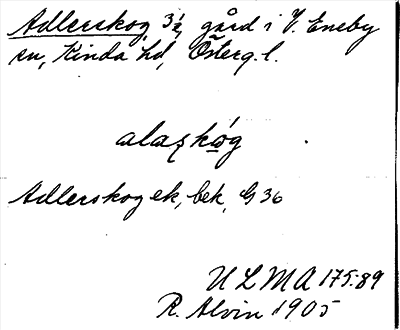 Adlerskog 3½, gård i V. Eneby
sn, Kinda hd, Österg. l.
alaʂkóg
Adlerskog ek, bek, G 36
ULMA 175:89
R. Alvin 1905